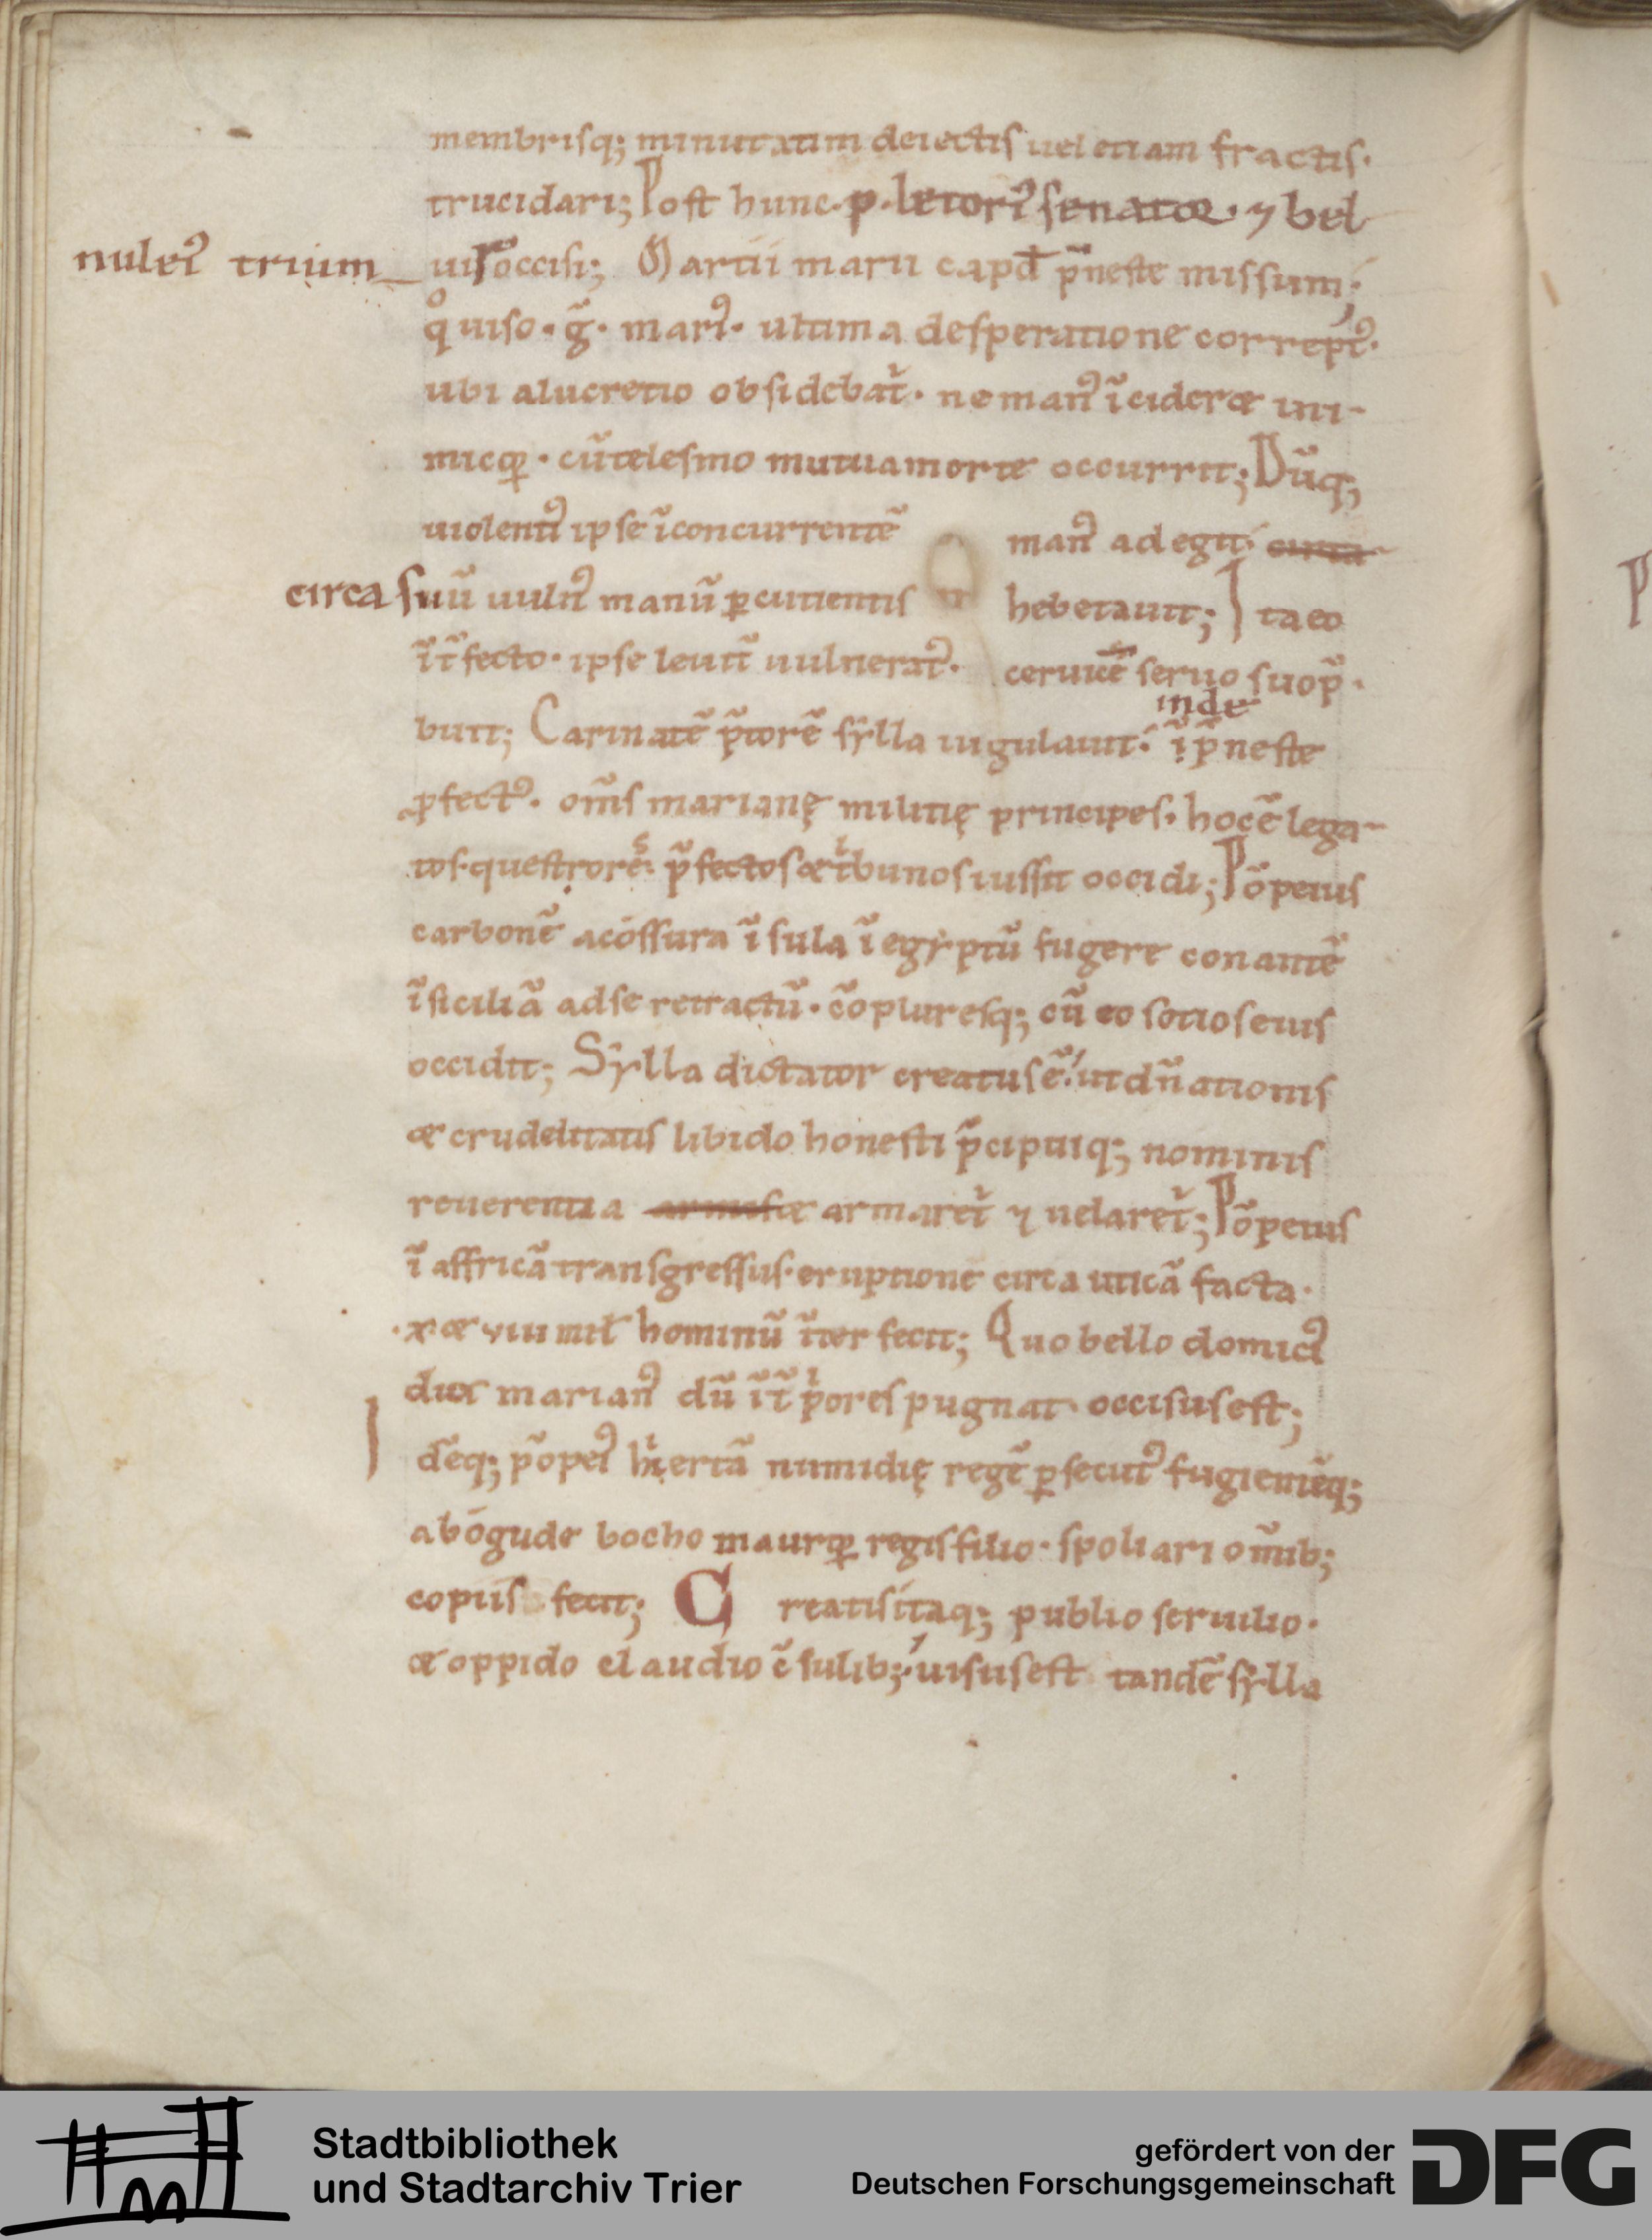 membrisq; minutatim deiectis uel etiam fractis·
trucidari; Post hunc·p·letori᾽ senator·⁊ bel
nulei᾽ trium_uir̃ occisi; Martii marii capđ p̃neste missum;
qͦ uiso·g̃·mari᾽·ultima desperatione corrept᾽·
ubi alucretio obsidebat᷑·ne man᾽ ĩciderꝫ ini-
micoꝝ·cũ telesino mutua morte occurrit; Dũq;
uiolenti᾽ ipse ĩconcurrentẽ man᾽ adegit· circa
circa suũ uuln᾽ manũ ꝑcutientis hebetauit; Ita eo
ĩt̃fecto·ipse leuit̃ uulnerat᾽· ceruicẽ seruo suo p̃·
buit; Carinatẽ p̃torẽ sẏlla iugulauit· inde ĩ p̃neste
ꝓfect᾽·om̃s marianę militię principes·hoc ẽ lega-
tos·questroreˢ·p̃fectos & tⁱbunos iussit occidi; Põpeius
carbonẽ acossura ĩsula ĩ egẏptũ fugere conantẽ
ĩ siciliã ad se retractũ·cõpluresq; cũ eo sotios eius
occidit; Sẏlla dictator creatus ẽ· ut dñationis
& crudelitatis libido honesti p̃cipuiq; nominis
reuerentia armasꝫ armaret᷑ ⁊ uelaret᷑; Põpeius
ĩ affricã transgressus·eruptione circa uticã facta·
·x·& viii mil̃ hominũ ĩterfecit; Quo bello domici᾽
dux marian᾽ dũ ĩt̃ pⁱores pugnat occisus est;
I
dẽq; põpei᾽ hⁱertã numidię regẽ ꝑsecut᾽ fugientẽq;
abogude bocho mauroꝝ regis filio·spoliari om̃ib;
copiis fecit; C reatis itaq; publio seruilio·
& oppido claudio c̃sulib;· uisus est tandẽ sẏlla
Stadtbibliothek
und Stadtarchiv Trier
gefördert von der
Deutschen Forschungsgemeinschaft
DFG